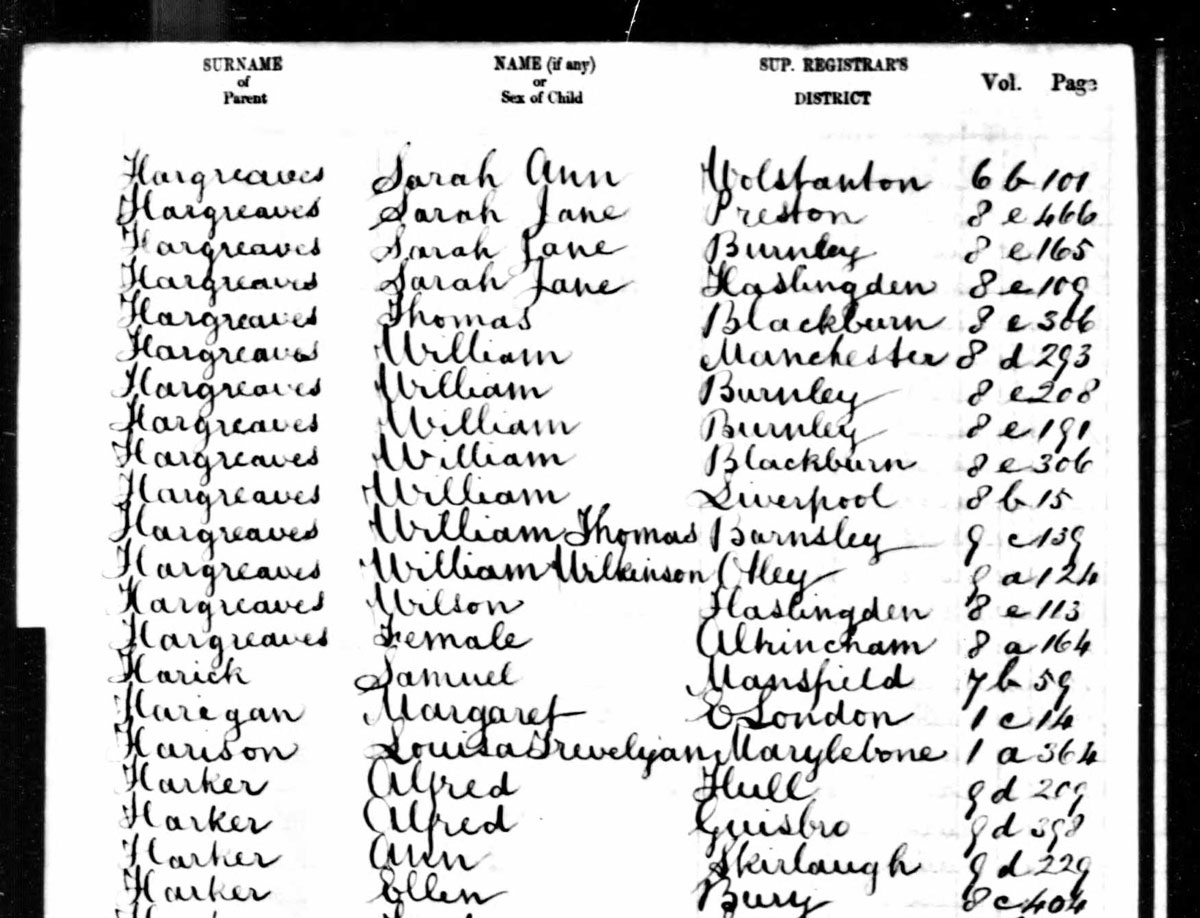 SURNAME of Parent NAME (if any) or Sex of Child SUP. REGISTRAR'S DISTRICT Vol. Page
Hargreaves Sarah Ann Wolstanton 6 b 101
Hargreaves Sarah Jane Preston 8 e 466
Hargreaves Sarah Jane Burnley 8 e 165
Hargreaves Sarah Jane Haslingden 8 e 109
Hargreaves Thomas Blackburn 8 e 306
Hargreaves William Manchester 8 d 293
Hargreaves William Burnley 8 e 208
Hargreaves William Burnley 8 e 191
Hargreaves William Blackburn 8 e 306
Hargreaves William Liverpool 8 b 15
Hargreaves William Thomas Barnsley 9 c 139
Hargreaves William Wilkinson Otley 9 a 124
Hargreaves Wilson Haslingden 8 e 113
Hargreaves Female Altrincham 8 a 164
Harick Samuel Mansfield 7 b 59
Harigan Margaret E London 1 c 14
Harison Louisa Trevelyan Marylebone 1 a 364
Harker Alfred Hull 9 d 209
Harker Alfred Guisbro 9 d 398
Harker Ann Skirlaugh 9 d 229
Harker Ellen Bury 8 c 404